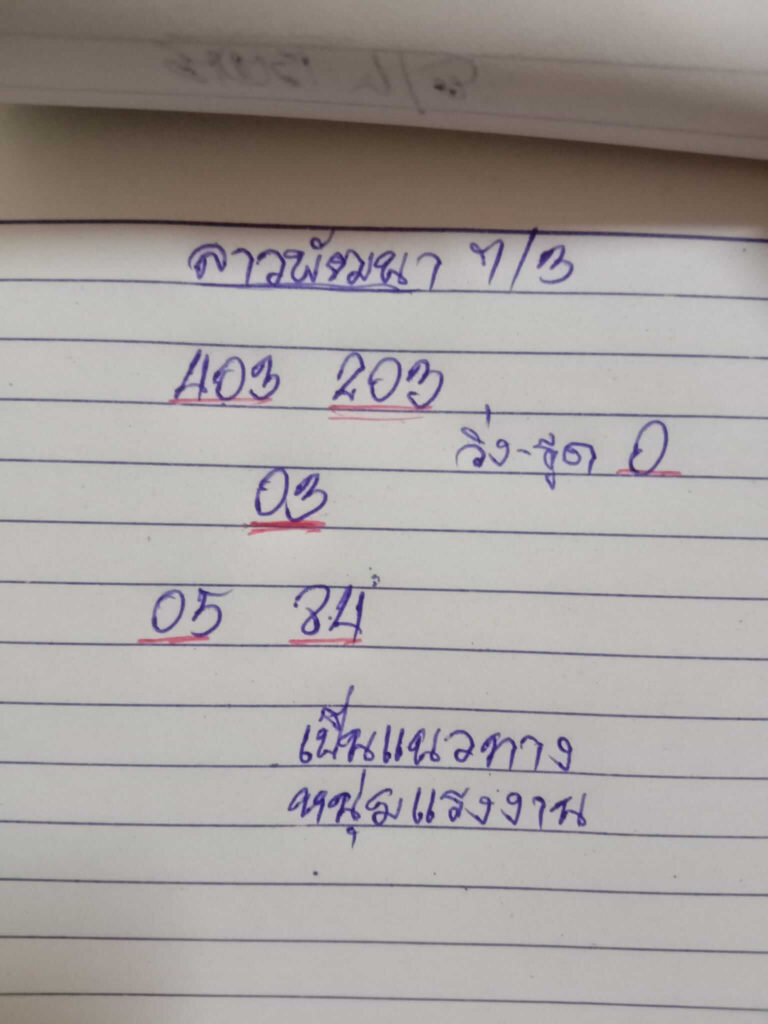 ลาวพัฒนา 7/3
403 203
วิ่ง-รูด 0
03
05 84
เป็นแนวทาง
หนุ่มแรงงาน